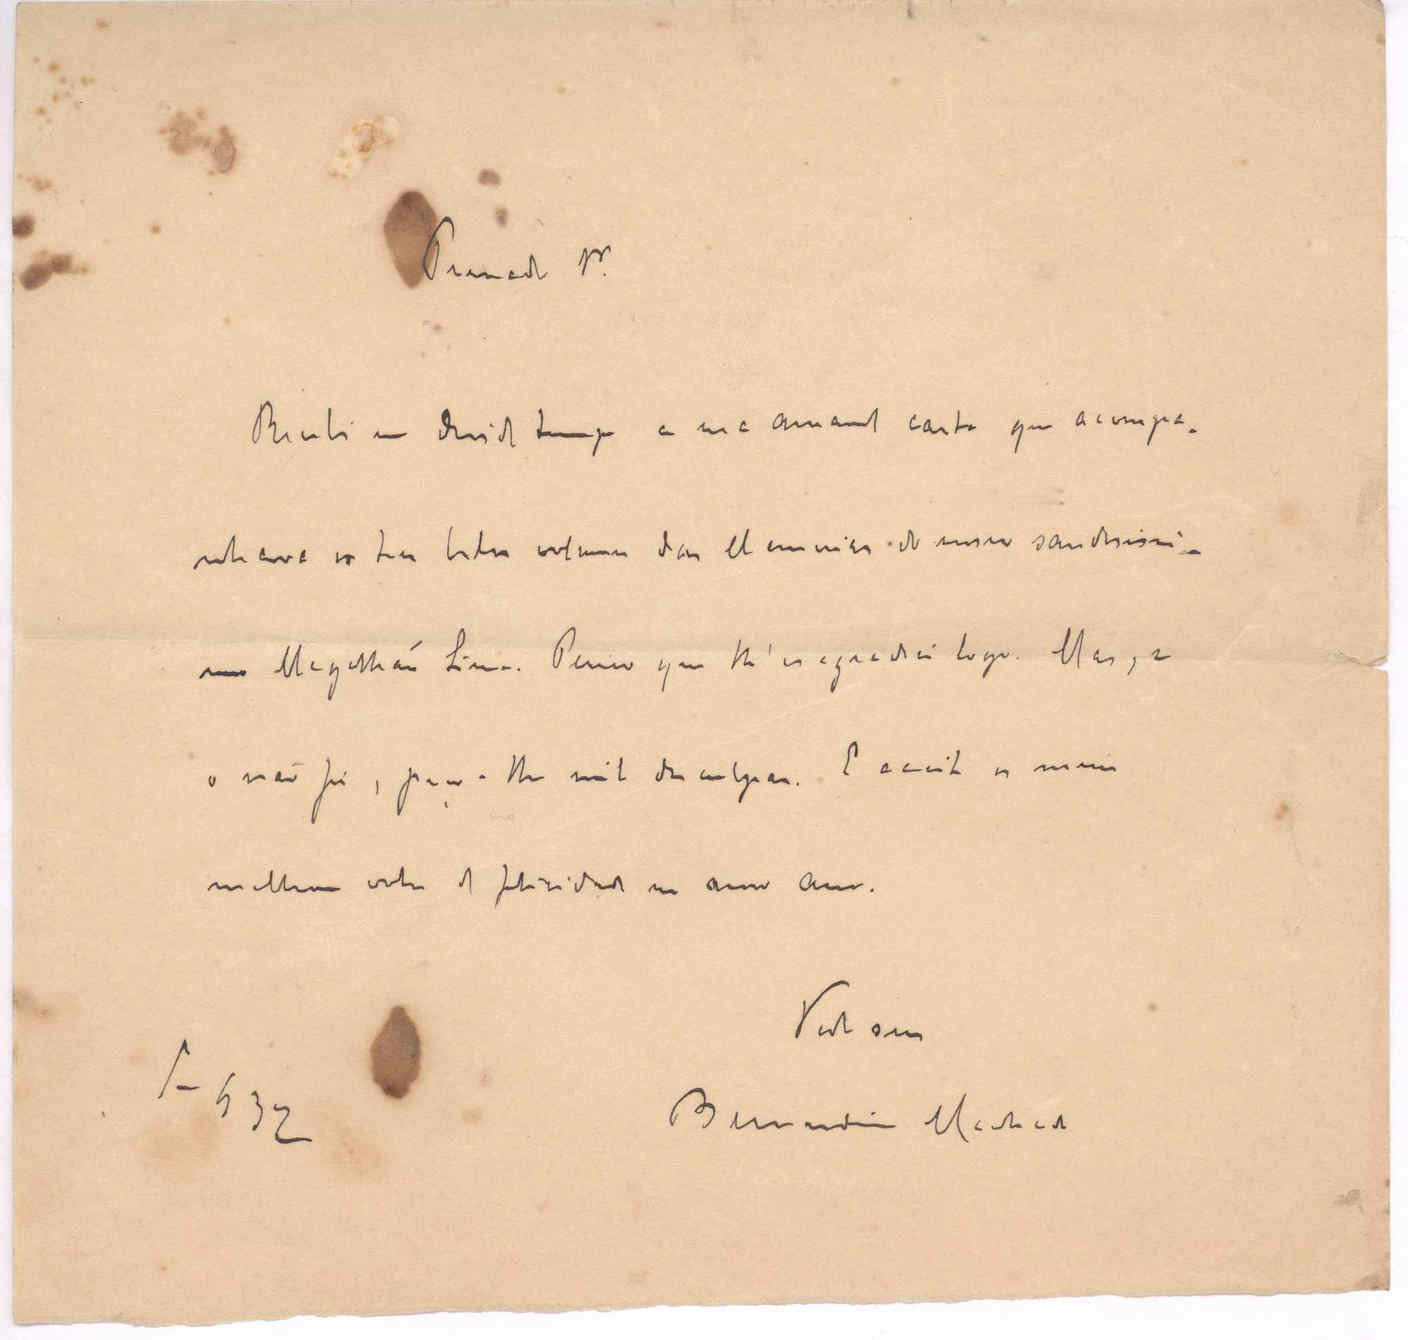 Prezado Sr.
Recebi em devido tempo a sua amavel carta que acompa-
nhava os dois volumes das Memorias do nosso saudosissi-
mo Magalhães Lima. Penso que lh'os agradeci logo. Mas, se
o não fiz, peço-lhe mil desculpas. E aceite os meus
melhores votos de felicidade no novo ano.
Todo seu
Bernardino Machado